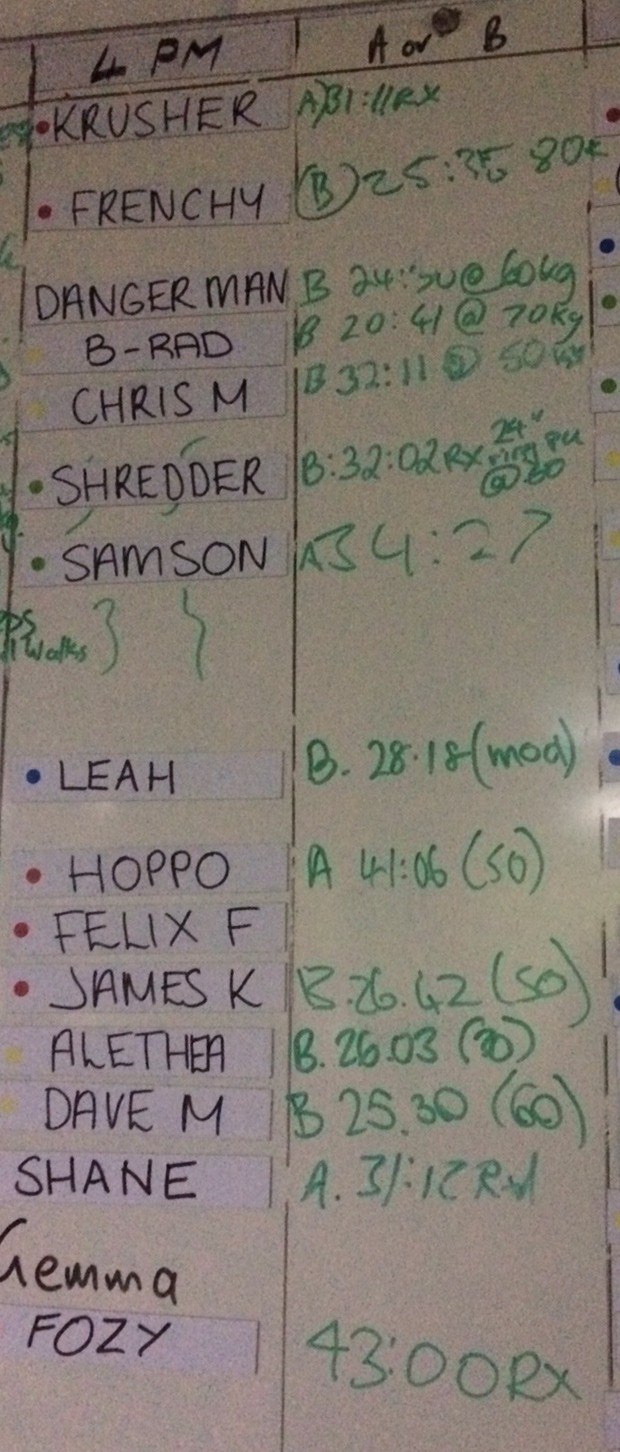 4 PM A or B
KRUSHER A) 31:11 RX
FRENCHY (B) 25:35 80K
DANGER MAN B 24:30 @ 60kg
B-RAD B 20:41 @ 70kg
CHRIS M B 32:11 @ 50
SHREDDER B:32:02 RX 24" ring pu @ 80
SAMSON A 34:27
Walks
LEAH B. 28.18 (mod)
HOPPO A 41:06 (50)
FELIX F
JAMES K B.26.42 (50)
ALETHEA B. 26.03 (30)
DAVE M B 25.30 (60)
SHANE A. 31:12
Gemma
FOZY 43:00 RX